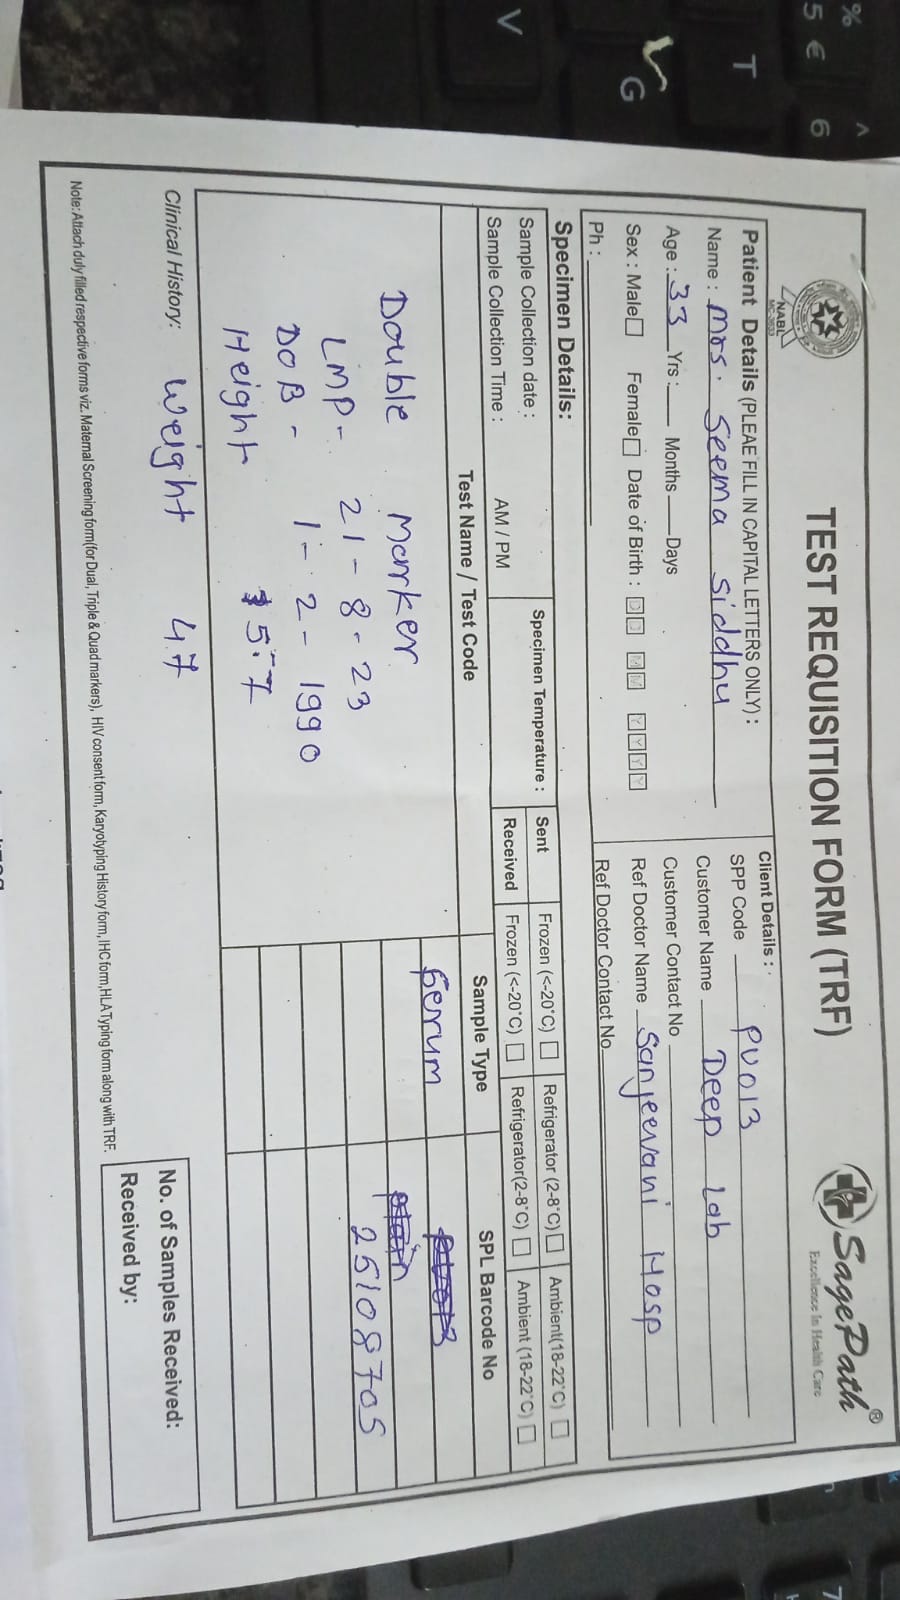 TEST REQUISITION FORM (TRF)
NABL
SagePath®
Excellence In Health Care
Patient Details (PLEAE FILL IN CAPITAL LETTERS ONLY) :
Name : Mrs. Seema Siddhu
Age : 33 Yrs : Months Days
Sex : Male Female Date of Birth : DD MM YYYY
Ph :
Client Details :
SPP Code PU013
Customer Name Deep Lab
Customer Contact No
Ref Doctor Name Sanjeevani Hosp
Ref Doctor Contact No
Specimen Details:
Sample Collection date :
Sample Collection Time : AM / PM
Specimen Temperature :
Sent Frozen (<-20°C) Refrigerator (2-8°C) Ambient(18-22°C)
Received Frozen (<-20°C) Refrigerator(2-8°C) Ambient (18-22°C)
Test Name / Test Code Sample Type SPL Barcode No
Double Marker Serum
LMP- 21-8-23 25108705
DOB- 1-2-1990
Height 5.7
Clinical History: Weight 47
No. of Samples Received:
Received by:
Note: Attach duly filled respective forms viz. Maternal Screening form(for Dual, Triple & Quad markers), HIV consent form, Karyotyping History form, IHC form,HLA Typing form along with TRF.
% 5 € ^ 6 T G V